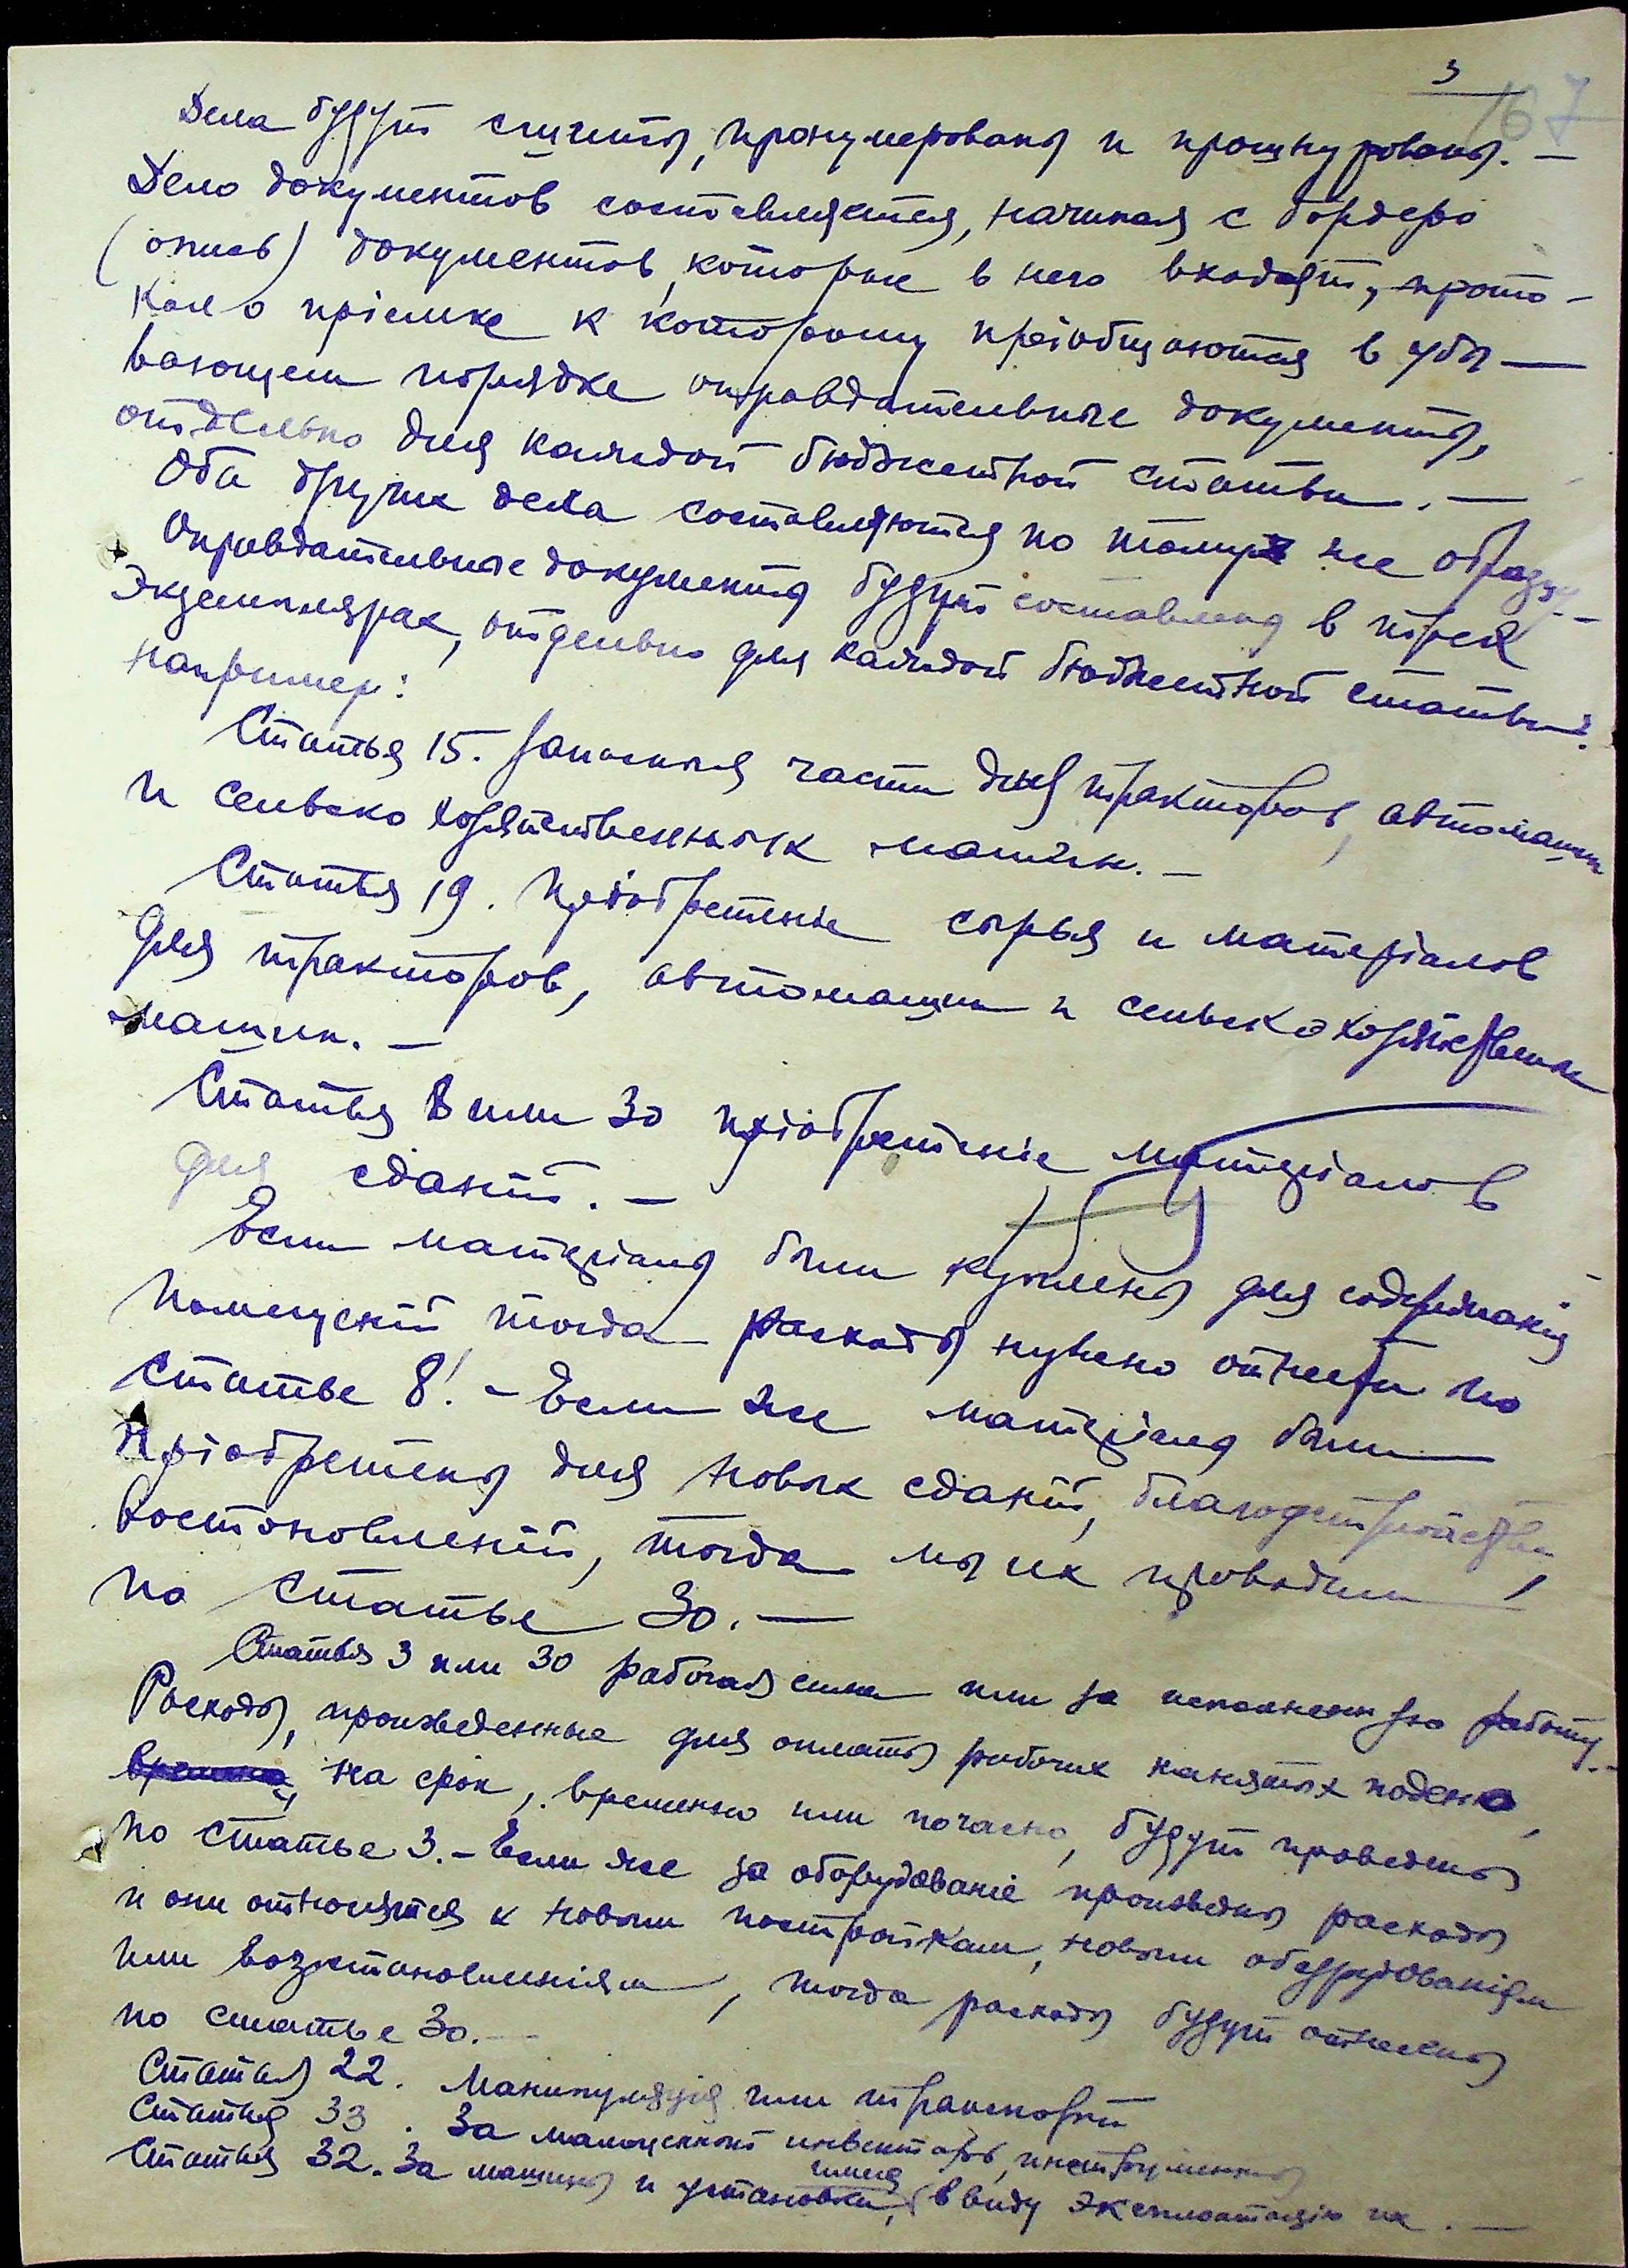 3
167
Дела будут сшиты, пронумерованы и прошнурованы. —
Дело документов составляется, начиная с бордеро
(опись) документов, которые в него входят, прото-
кол о пріемке к которому пріобщаются в убы—
вающем порядке оправдательные документы,
отдельно для каждой бюджетной статьи. —
Оба других дела составляются по тому же образу. —
Оправдательные документы будут составлены в трех
экземплярах, отдельно для каждой бюджетной статьи.
например:
Статья 15. Запасныя части для тракторов, автомашин
и сельско хозяйственных машин. —
Статья 19. Пріобретеніе сырья и матеріалов
для тракторов, автомашин и сельскохозяйственных
машин. —
Статья 8 или 30 пріобретеніе матеріалов
для сданій. —
Если матеріалы были куплены для содержанія
помещеній тогда расходы нужно отнести по
статье 8! — Если же матеріалы были
пріобретены для новых сданій, благоустройства,
востановленій, тогда мы их проводим
по статье 30. —
Статья 3 или 30 рабочая сила или за исполненную работу. —
Расходы, произведенные для оплаты рабочих нанятых поденно,
на срок, временно или почасно, будут проведены
по статье 3. — Если же за оборудованіе произведены расходы
и они относятся к новым постройкам, новым оборудованіям
или возстановленіям, тогда расходы будут отнесены
по статье 30. —
Статья 22. Манипуляція или транспорт
Статья 33. За малоценный инвентарь, инструменты
Статья 32. За машины и установки, имея в виду эксплоатацію их. —